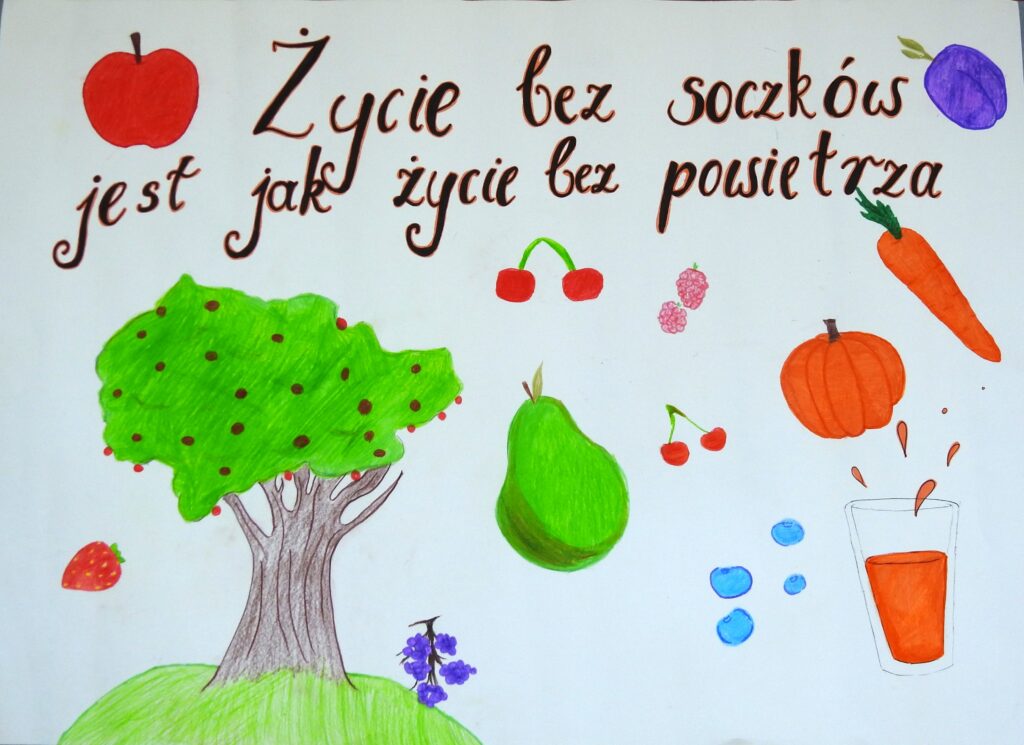 Życie bez soczków
jest jak życie bez powietrza